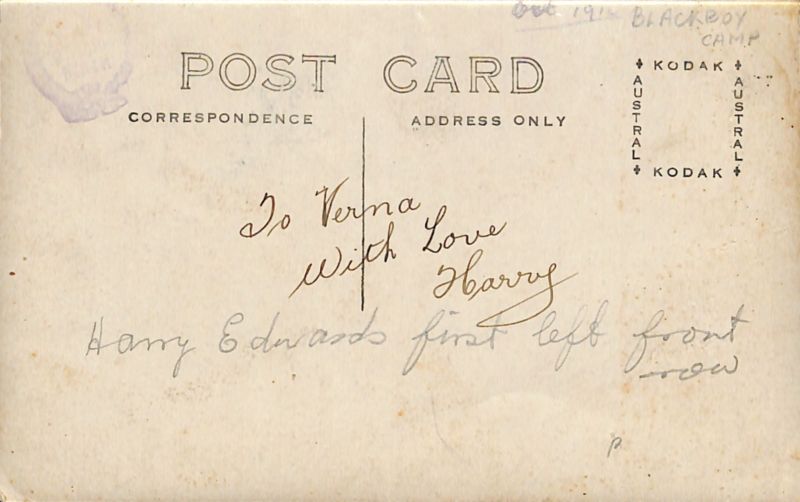 Oct 191
BLACKBOY
CAMP
POST CARD
CORRESPONDENCE
ADDRESS ONLY
KODAK
AUSTRAL
AUSTRAL
KODAK
To Verna
With Love
Harry
Harry Edwards first left front
row
P